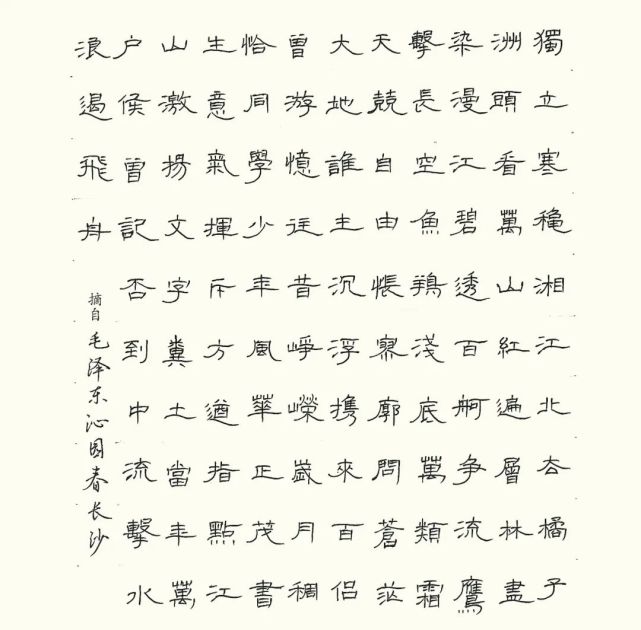 獨立寒穐湘江北去橘子
洲頭看萬山紅遍層林盡
染漫江碧透百舸争流鷹
擊長空魚翔淺底萬類霜
天競自由悵寥廓問蒼茫
大地誰主沉浮携來百侣
曾游憶往昔崢嶸歲月稠
恰同學少年風華正茂書
生意氣揮斥方遒指點江
山激揚文字糞土當年萬
户侯曾記否到中流擊水
浪遏飛舟
摘自毛泽东沁园春长沙